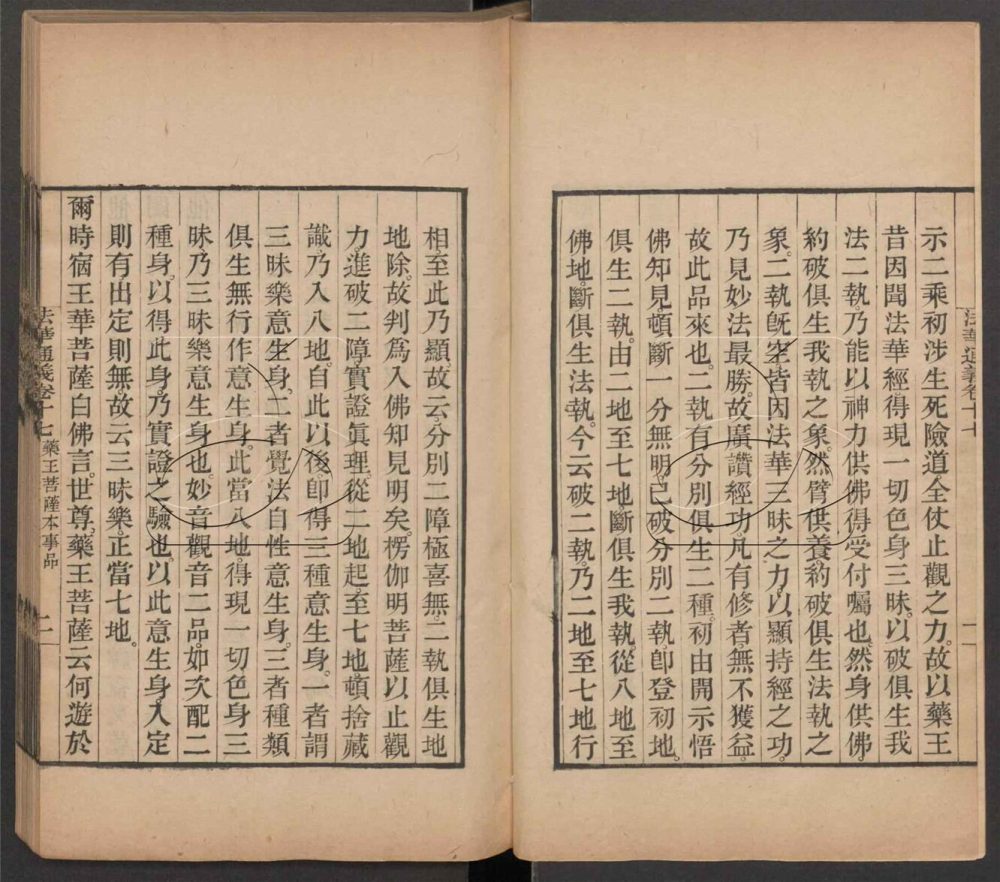 示二乘初涉生死險道全仗止觀之力故以藥王
昔因聞法華經得現一切色身三昧以破俱生我
法二執乃能以神力供佛得受付囑也然身供佛
約破俱生我執之象然臂供養約破俱生法執之
象二執旣空皆因法華三昧之力以顯持經之功
乃見妙法最勝故廣讚經功凡有修者無不獲益
故此品來也二執有分別俱生二種初由開示悟
佛知見頓斷一分無明已破分別二執卽登初地
俱生二執由二地至七地斷俱生我執從八地至
佛地斷俱生法執今云破二執乃二地至七地行
相至此乃顯故云分別二障極喜無二執俱生地
地除故判爲入佛知見明矣楞伽明菩薩以止觀
力進破二障實證眞理從二地起至七地頓捨藏
識乃入八地自此以後卽得三種意生身一者謂
三昧樂意生身二者覺法自性意生身三者種類
俱生無行作意生身此當八地得現一切色身三
昧乃三昧樂意生身也妙音觀音二品如次配二
種身以得此身乃實證之驗也以此意生身入定
則有出定則無故云三昧樂正當七地
爾時宿王華菩薩白佛言世尊藥王菩薩云何遊於
法華通義卷十七 藥王菩薩本事品 二